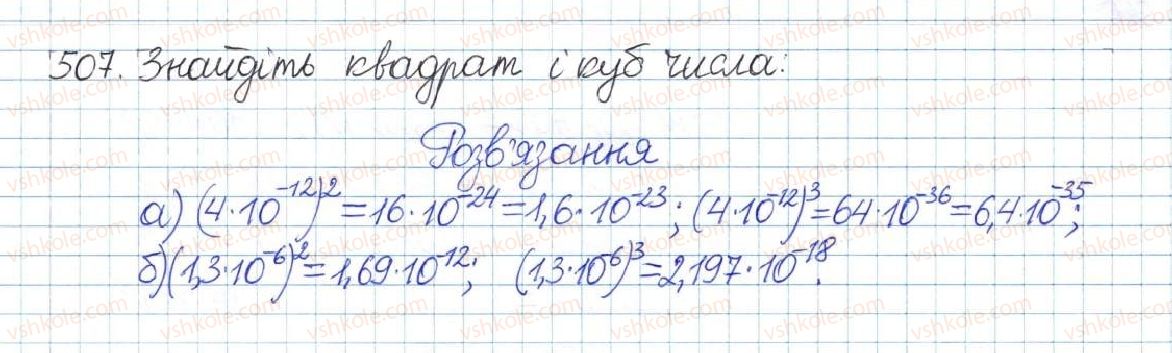 507. Знайдіть квадрат і куб числа:
Розв'язання
а) (4·10⁻¹²)² = 16·10⁻²⁴ = 1,6·10⁻²³; (4·10⁻¹²)³ = 64·10⁻³⁶ = 6,4·10⁻³⁵;
б) (1,3·10⁻⁶)² = 1,69·10⁻¹²; (1,3·10⁻⁶)³ = 2,197·10⁻¹⁸.